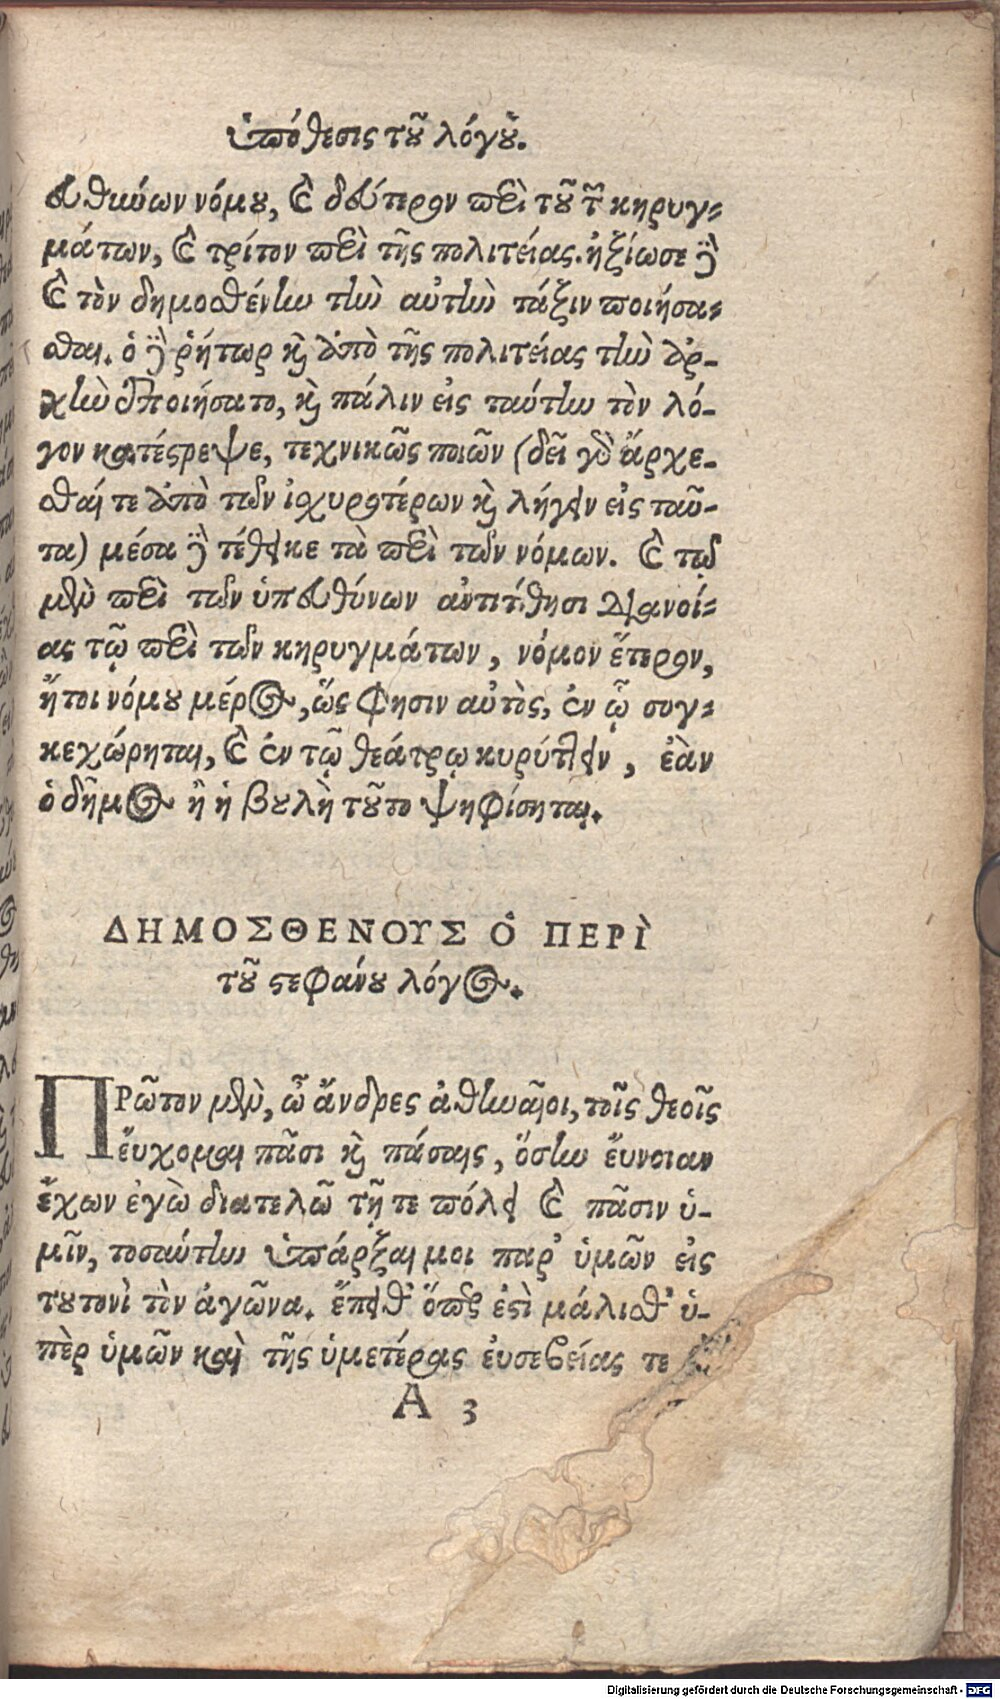 ὑπόθεσις τοῦ λόγου.
ευθυνῶν νόμου, καὶ δεύτερον περὶ τοῦ τῶν κηρυγ-
μάτων, καὶ τρίτον περὶ τῆς πολιτείας. ἠξίωσε δὲ
καὶ τὸν δημοσθένην τὴν αὐτὴν τάξιν ποιήσα-
σθαι. ὁ δὲ ῥήτωρ καὶ ἀπὸ τῆς πολιτείας τὴν ἀρ-
χὴν ἐποιήσατο, καὶ πάλιν εἰς ταύτην τὸν λό-
γον κατέστρεψε, τεχνικῶς ποιῶν (δεῖ γὰρ ἄρχε-
σθαί τε ἀπὸ τῶν ἰσχυροτέρων καὶ λήγειν εἰς ταῦ-
τα) μέσα δὲ τέθεικε τὰ περὶ τῶν νόμων. καὶ τῷ
μὲν περὶ τῶν ὑπευθύνων ἀντιτίθησι διανοί-
ας τῷ περὶ τῶν κηρυγμάτων, νόμον ἕτερον,
ἤτοι νόμου μέρος, ὥς φησιν αὐτὸς, ἐν ᾧ συγ-
κεχώρηται, καὶ ἐν τῷ θεάτρῳ κυρύττειν, ἐὰν
ὁ δῆμος ἢ ἡ βουλὴ τοῦτο ψηφίσηται.
ΔΗΜΟΣΘΕΝΟΥΣ Ὁ ΠΕΡῚ
τοῦ στεφάνου λόγος.
ΠΡῶτον μὲν, ὦ ἄνδρες ἀθηναῖοι, τοῖς θεοῖς
ἔυχομαι πᾶσι καὶ πάσαις, ὅσην ἔυνοιαν
ἔχων ἐγὼ διατελῶ τῇ τε πόλει καὶ πᾶσιν ὑ-
μῖν, τοσαύτην ὑπάρξαι μοι παρ' ὑμῶν εἰς
τουτονὶ τὸν ἀγῶνα. ἔπειθ' ὅπερ ἐστὶ μάλισθ' ὑ-
πὲρ ὑμῶν καὶ τῆς ὑμετέρας ἐυσεβείας τε
A 3
Digitalisierung gefördert durch die Deutsche Forschungsgemeinschaft - DFG